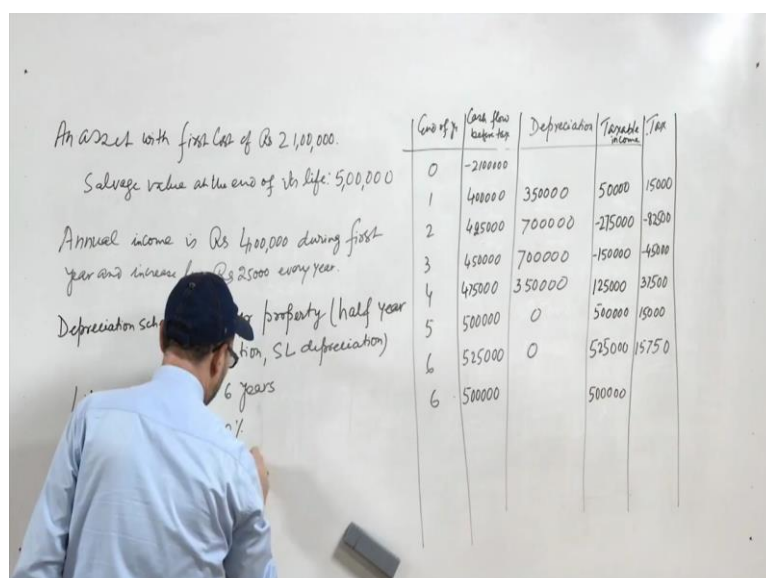 An asset with first Cost of Rs 21,00,000.
Salvage value at the end of its life: 5,00,000
Annual income is Rs 4,00,000 during first
year and increase Rs 25000 every year.
Depreciation property (half year
SL depreciation)
6 years
%
End of yr Cash flow before tax Depreciation Taxable income Tax
0 -2100000
1 400000 350000 50000 15000
2 425000 700000 -275000 -82500
3 450000 700000 -150000 -45000
4 475000 350000 125000 37500
5 500000 0 500000 15000
6 525000 0 525000 15750
6 500000 500000